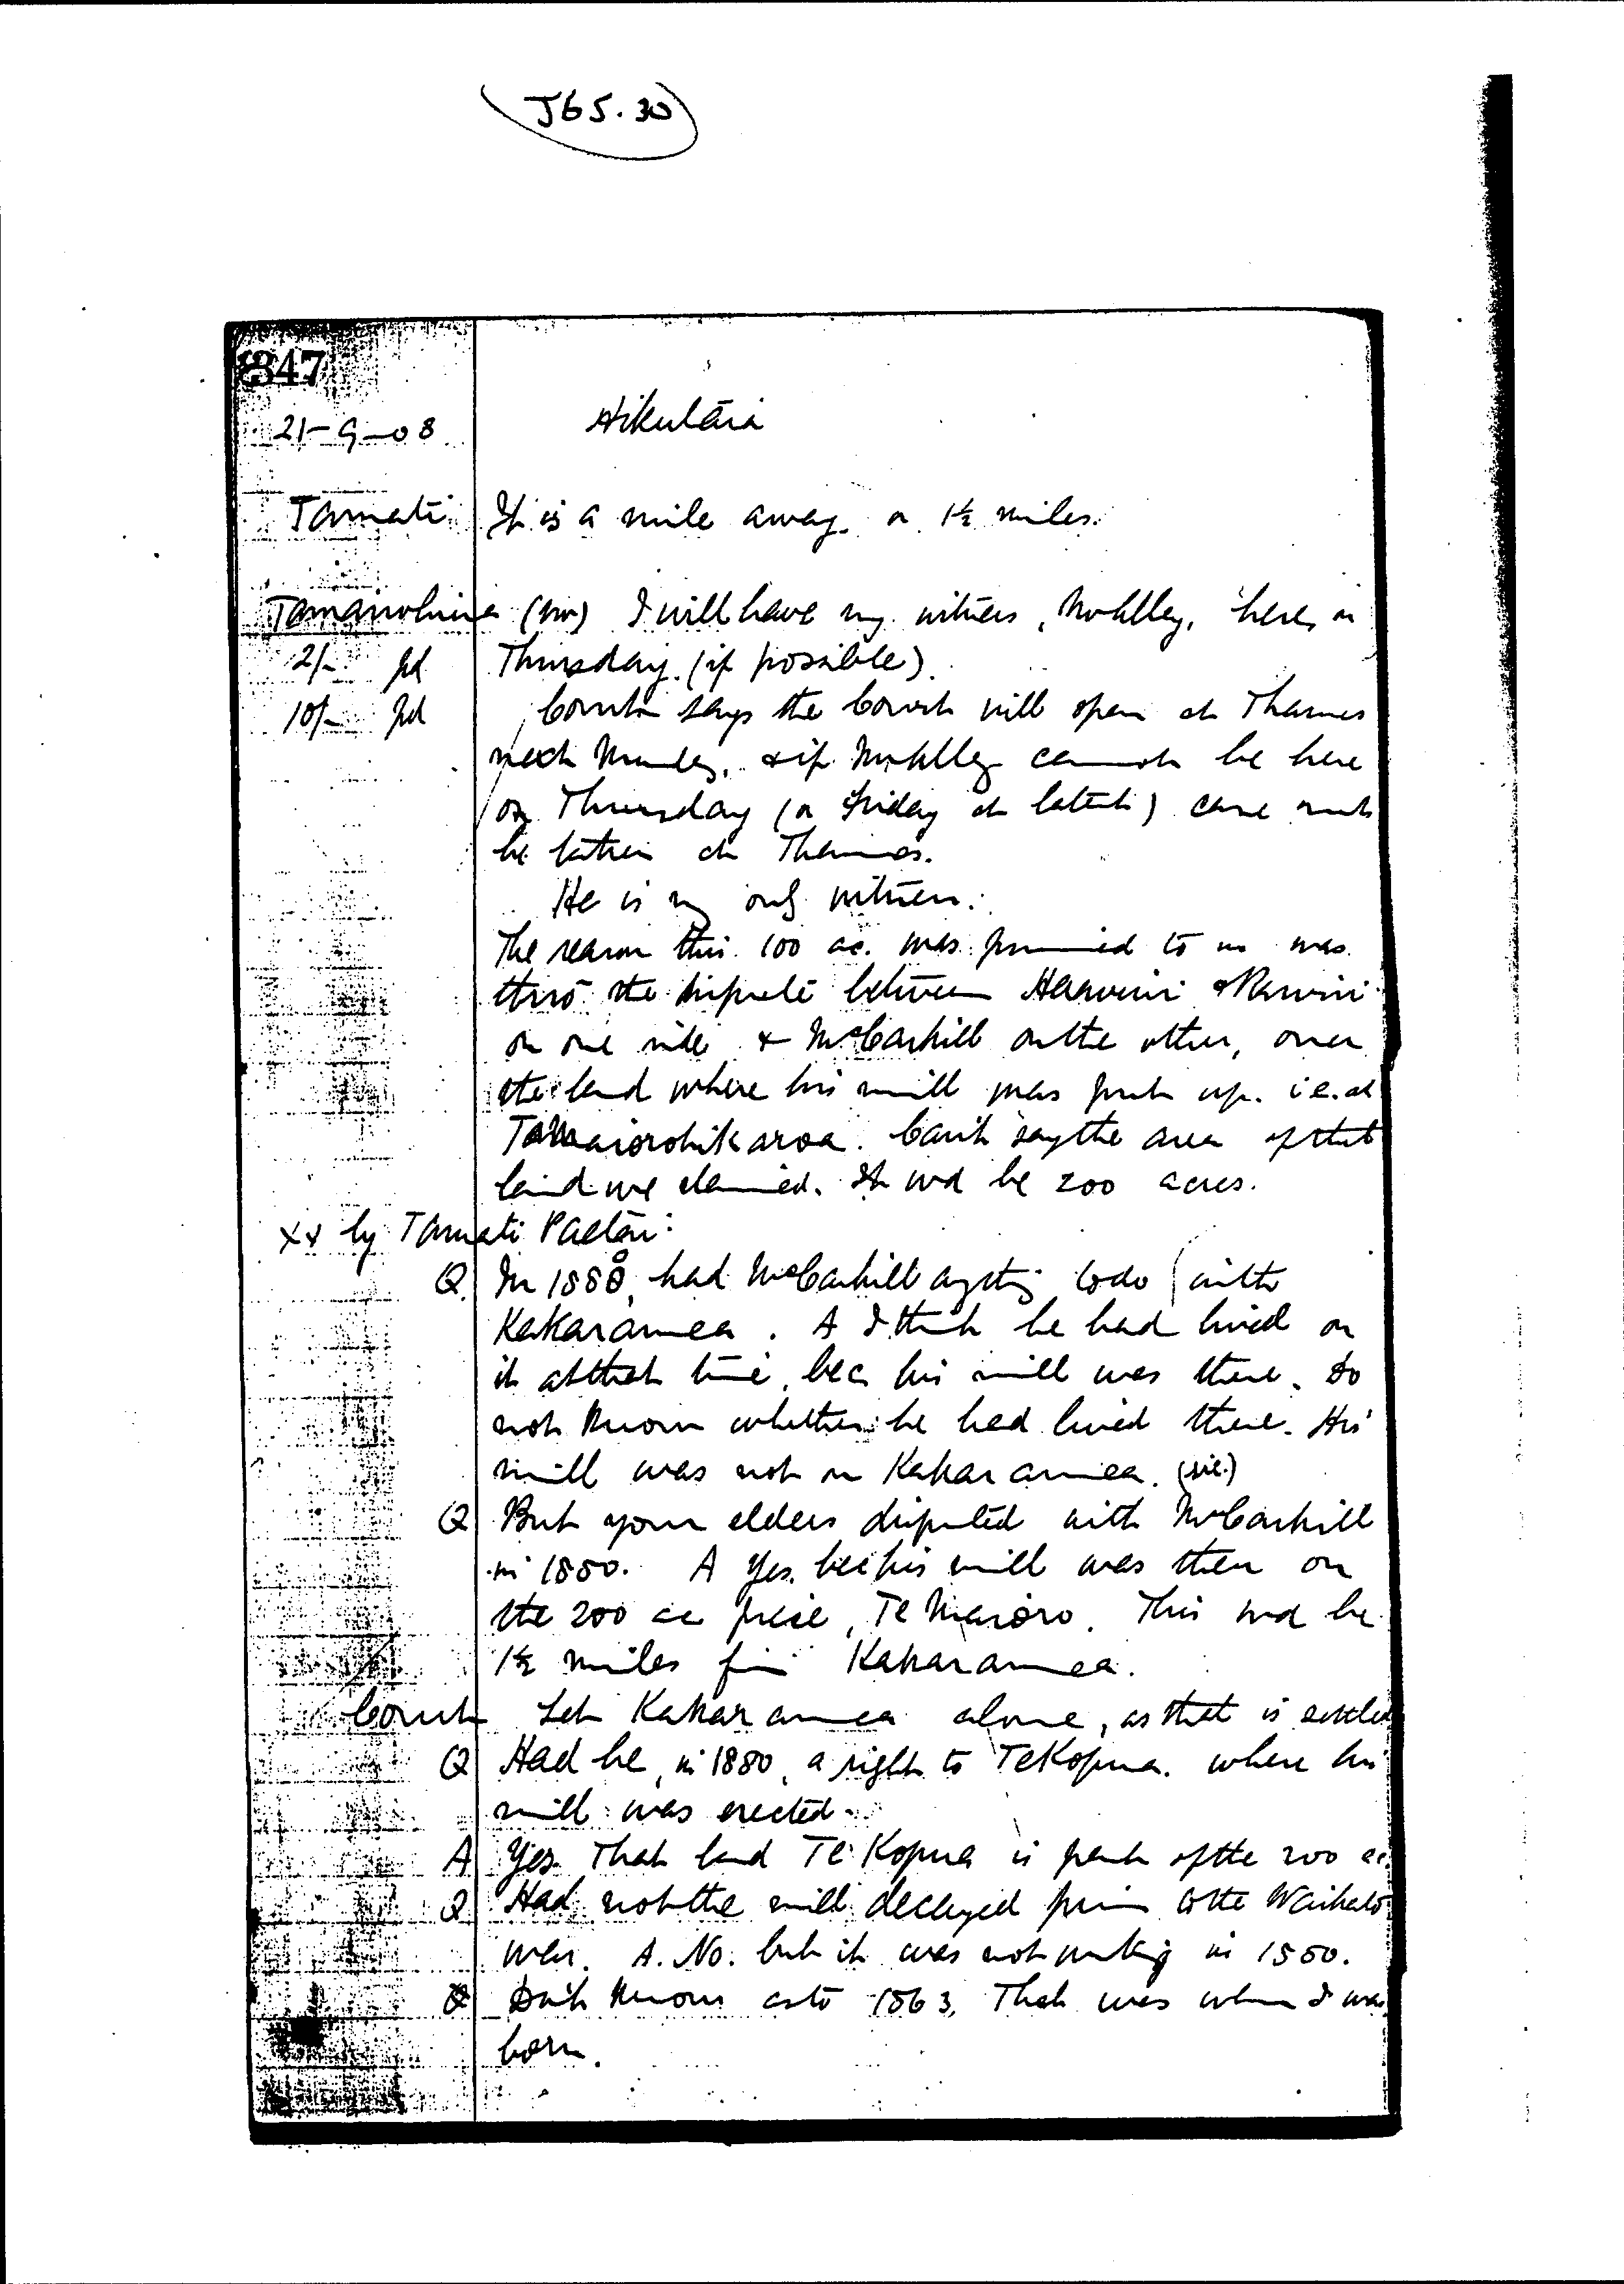 J65.30
347
21-9-08 Hikutaia
Tamati It is a mile away or 1½ miles.
(sw) I will have my witness, here, on
2/- pd Thursday (if possible).
10/- pd Court says the Court will open at Thames
next Monday, & if cannot be here
on Thursday (or Friday at latest) case must
be taken at Thames.
He is my only witness.
The reason this 100 ac. was promised to us was
thro' the dispute between &
on one side & McCaskill on the other, over
the land where his mill was put up. i.e. at
Can't say the area of that
land we claimed. It wd be 200 acres.
xx by Tamati Paetai:
Q. In 1880, had McCaskill anything to do with
Kakaramea. A I think he had lived on
it at that time, bec. his mill was there. Do
not know whether he had lived there. His
mill was not on Kakaramea. (sic.)
Q But your elders disputed with McCaskill
in 1880. A Yes, bec his mill was then on
the 200 ac piece, Te Maioro. This wd be
1½ miles fm Kakaramea.
Court Let Kakaramea alone, as that is settled
Q Had he, in 1880, a right to Te Kopua. where his
mill was erected.
A Yes. That land Te Kopua is part of the 200 ac.
Q Had not the mill decayed prior to the Waikato
war. A. No. but it was not working in 1880.
Don't know as to 1863, That was when I was
born.